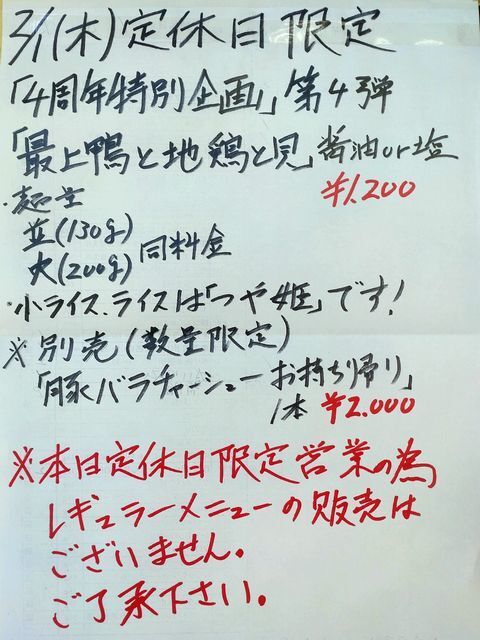 2/1(木)定休日限定
「4周年特別企画」第4弾
「最上鴨と地鶏と貝」醤油or塩
¥1.200
・麺量
並(130g)
大(200g)
同料金
・小ライス、ライスは「つや姫」です!
※別売(数量限定)
「豚バラチャーシューお持ち帰り」
1本 ¥2.000
※本日定休日限定営業の為
レギュラーメニューの販売は
ございません。
ご了承下さい。